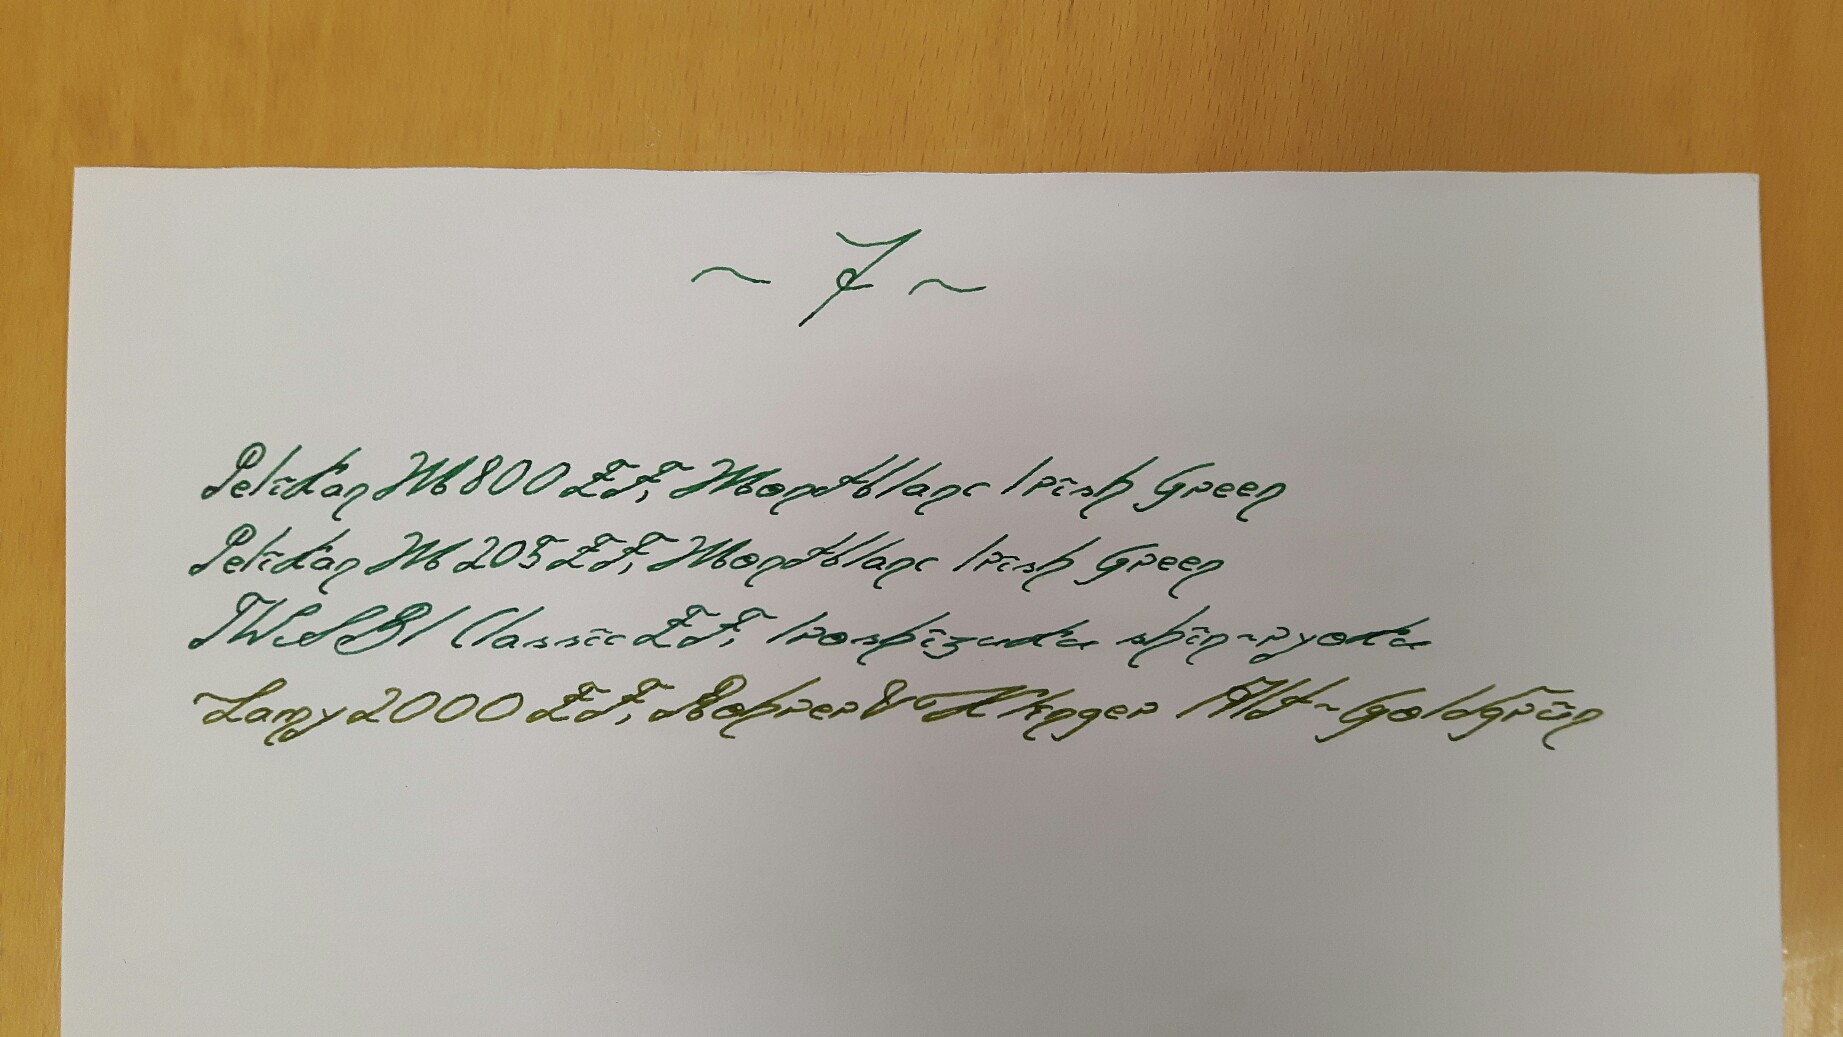 ~ 7 ~
Pelikan M800 EF, Montblanc Irish Green
Pelikan M205 EF, Montblanc Irish Green
TWSBI Classic EF, Iroshizuku shin-ryoku
Lamy 2000 EF, Rohrer & Klingner Alt-Goldgrün